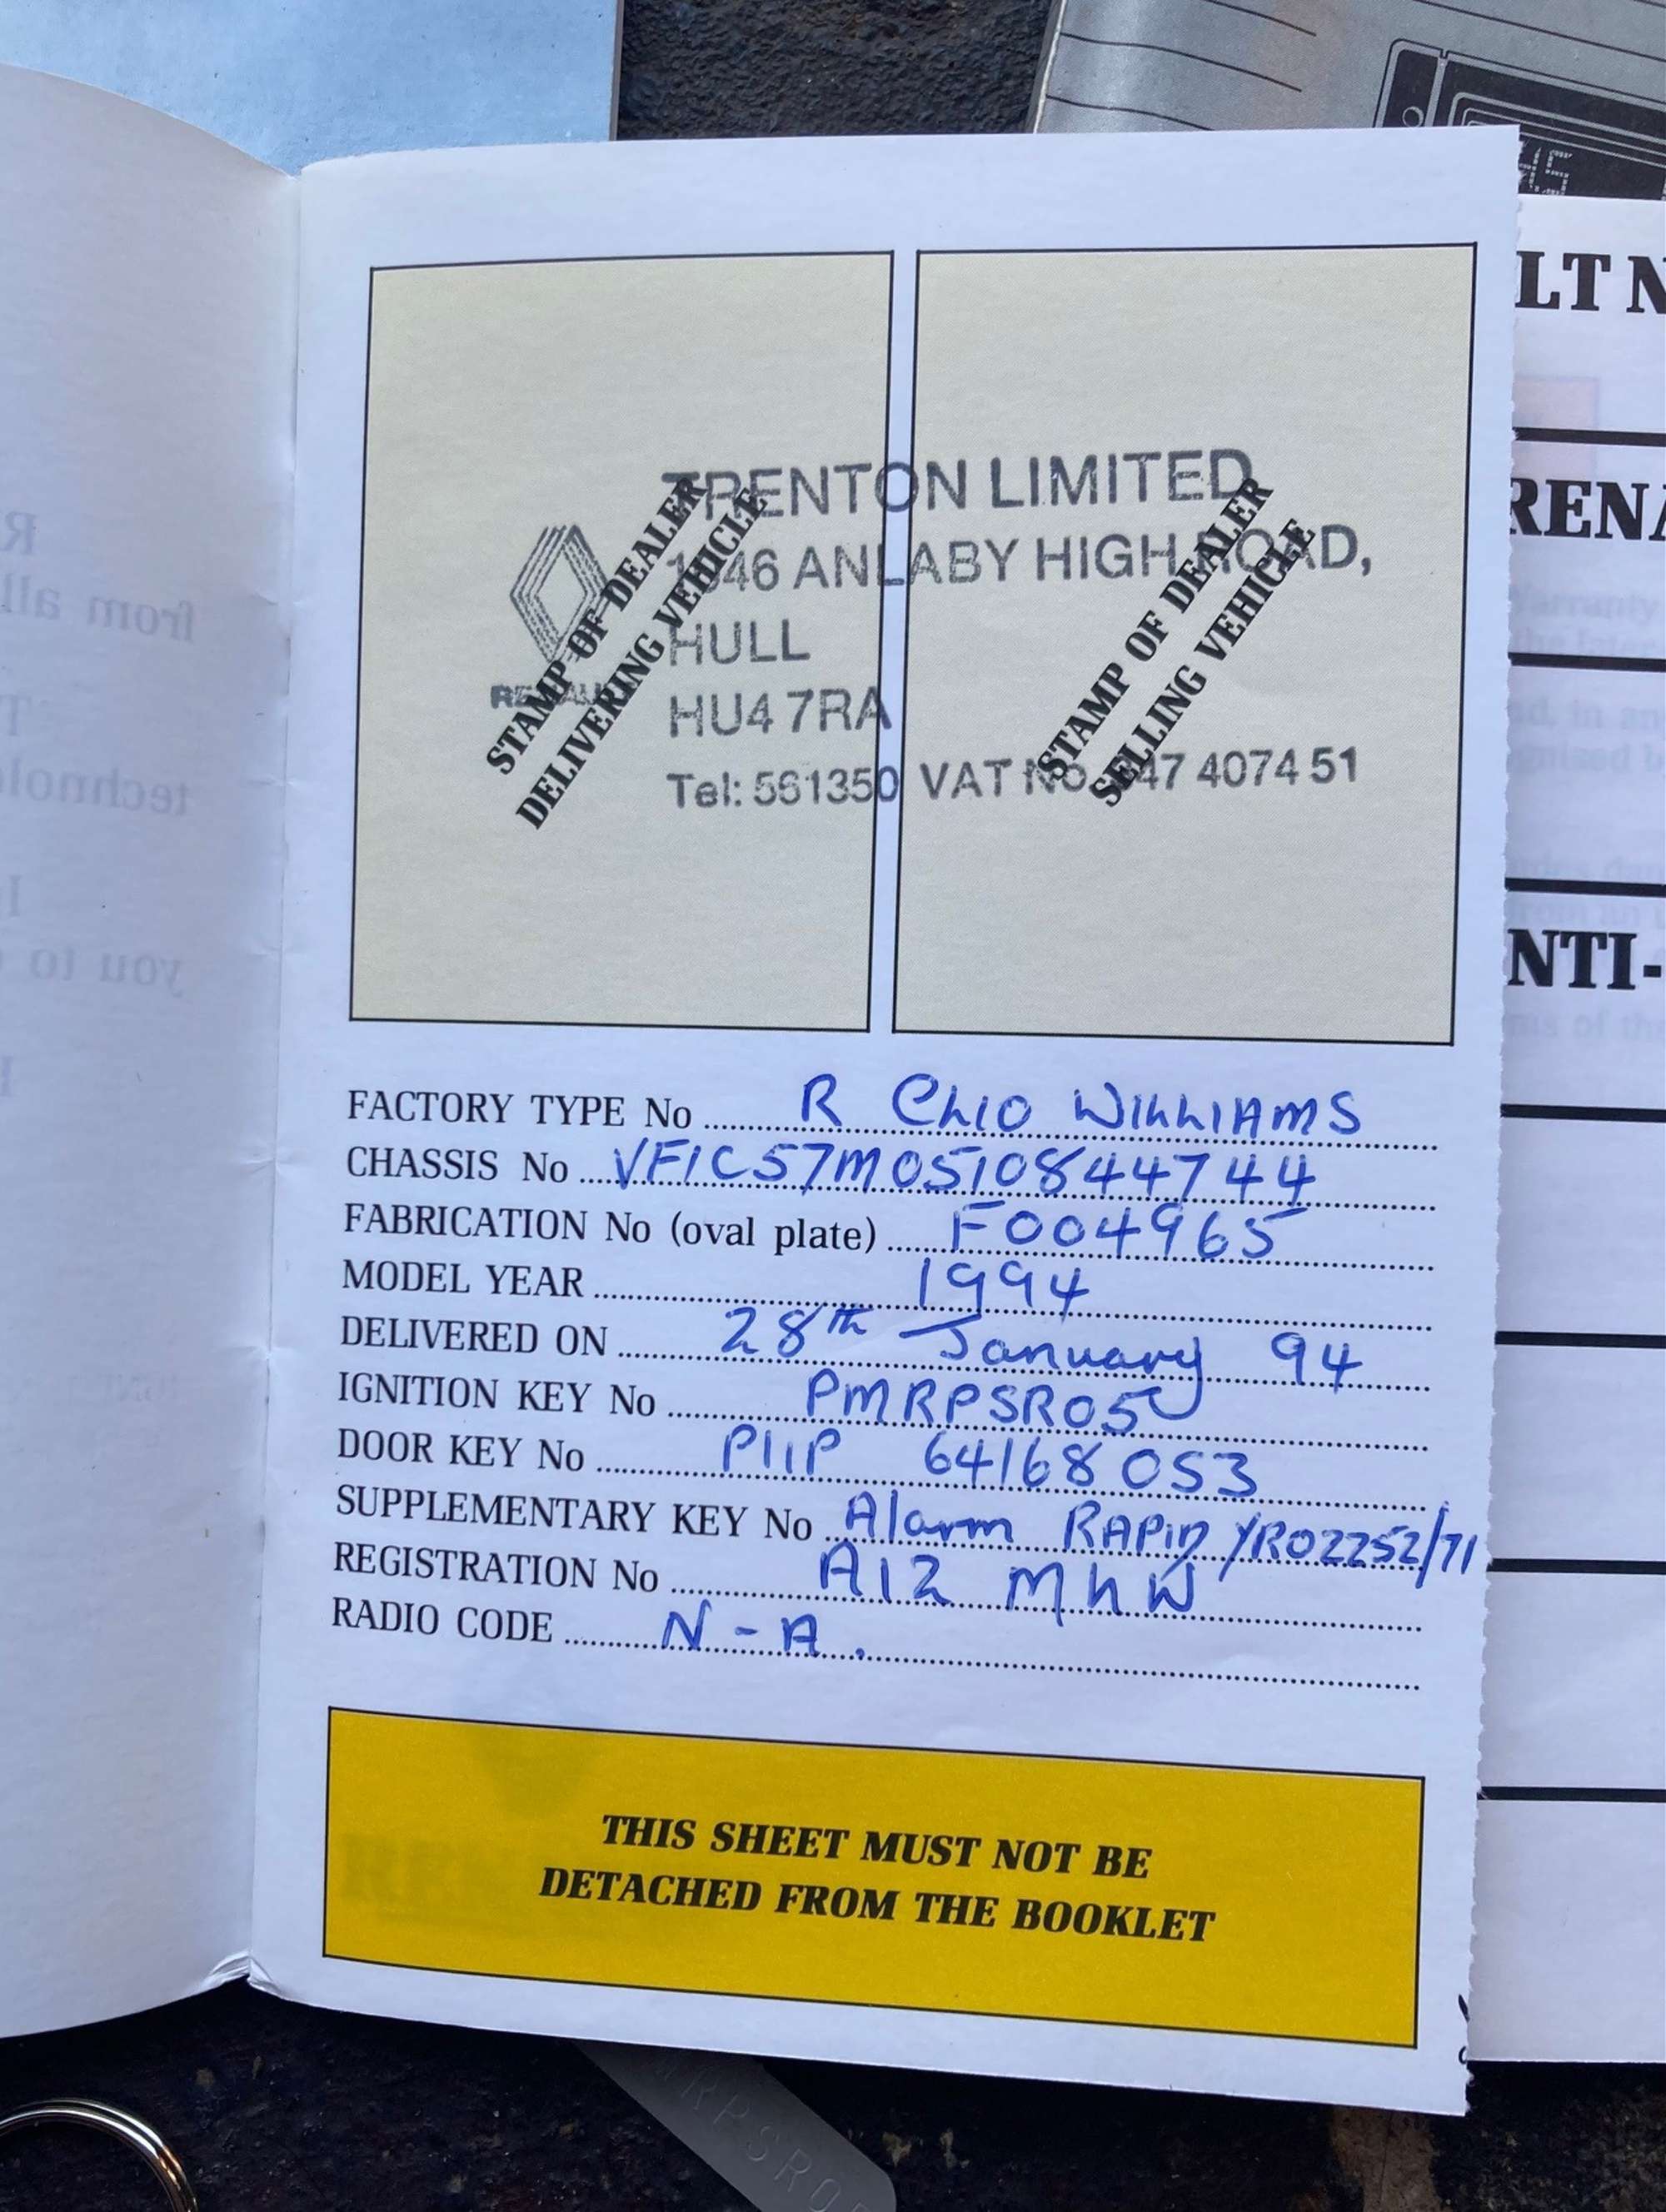 TRENTON LIMITED
1346 ANLABY HIGH ROAD,
HULL
HU4 7RA
Tel: 561350 VAT No. 47 4074 51
RENAULT
STAMP OF DEALER
DELIVERING VEHICLE
STAMP OF DEALER
SELLING VEHICLE
FACTORY TYPE No R CLIO WILLIAMS
CHASSIS No VF1C57M0510844744
FABRICATION No (oval plate) F004965
MODEL YEAR 1994
DELIVERED ON 28th January 94
IGNITION KEY No PMRPSR05
DOOR KEY No P11P 64168 053
SUPPLEMENTARY KEY No Alarm RAPiD YR02252/71
REGISTRATION No A12 MLW
RADIO CODE N-A.
THIS SHEET MUST NOT BE
DETACHED FROM THE BOOKLET
LT N
RENA
NTI-